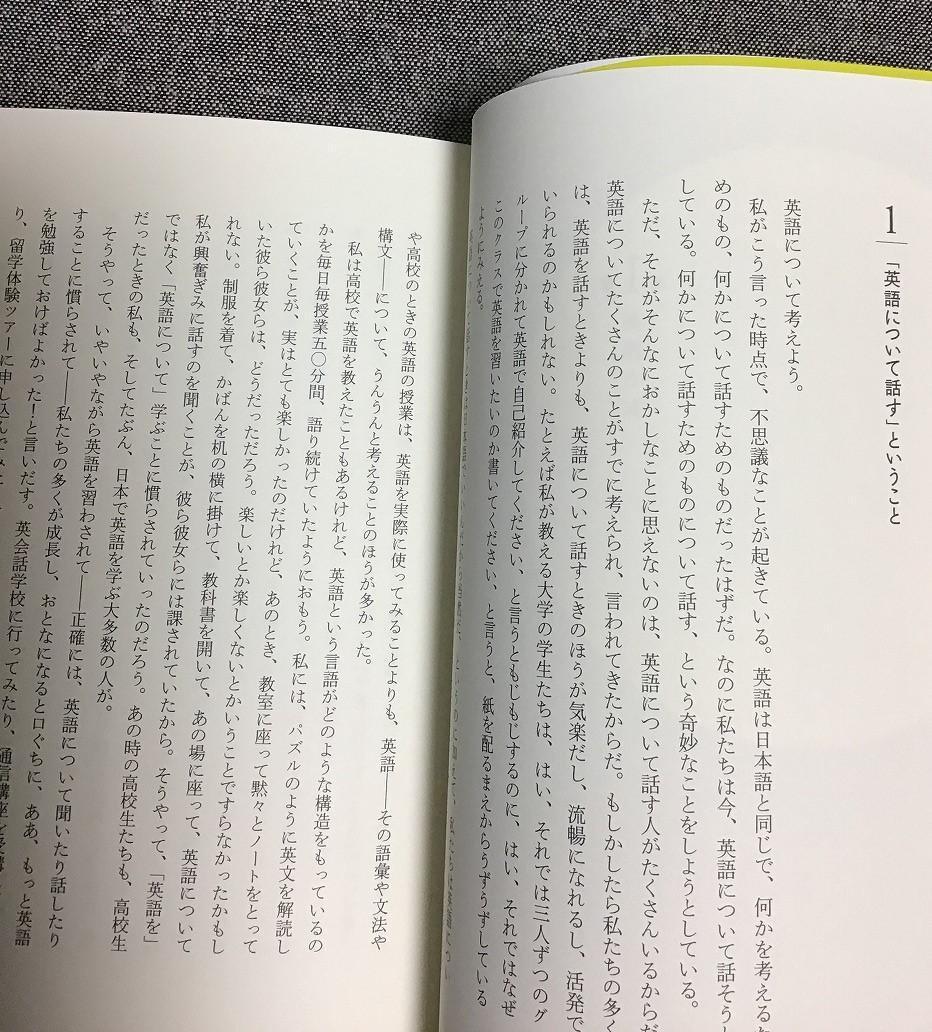 1 「英語について話す」ということ
英語について考えよう。
私がこう言った時点で、不思議なことが起きている。英語は日本語と同じで、何かを考えるた
めのもの、何かについて話すためのものだったはずだ。なのに私たちは今、英語について話そうと
している。何かについて話すためのものについて話す、という奇妙なことをしようとしている。
ただ、それがそんなにおかしなことに思えないのは、英語について話す人がたくさんいるからだ
英語についてたくさんのことがすでに考えられ、言われてきたからだ。もしかしたら私たちの多く
は、英語を話すときよりも、英語について話すときのほうが気楽だし、流暢になれるし、活発で
いられるのかもしれない。たとえば私が教える大学の学生たちは、はい、それでは三人ずつのグ
ループに分かれて英語で自己紹介してください、と言うともじもじするのに、はい、それではなぜ
このクラスで英語を習いたいのか書いてください、と言うと、紙を配るまえからうずうずしている
ようにみえる。
や高校のときの英語の授業は、英語を実際に使ってみることよりも、英語――その語彙や文法や
構文――について、うんうんと考えることのほうが多かった。
私は高校で英語を教えたこともあるけれど、英語という言語がどのような構造をもっているの
かを毎日毎授業五〇分間、語り続けていたようにおもう。私には、パズルのように英文を解読し
ていくことが、実はとても楽しかったのだけれど、あのとき、教室に座って黙々とノートをとって
いた彼ら彼女らは、どうだっただろう。楽しいとか楽しくないとかいうことですらなかったかもし
れない。制服を着て、かばんを机の横に掛けて、教科書を開いて、あの場に座って、英語について
私が興奮ぎみに話すのを聞くことが、彼ら彼女らには課されていたから。そうやって、「英語を」
ではなく「英語について」学ぶことに慣らされていったのだろう。あの時の高校生たちも、高校生
だったときの私も、そしてたぶん、日本で英語を学ぶ大多数の人が。
そうやって、いやいやながら英語を習わされて――正確には、英語について聞いたり話したり
することに慣らされて――私たちの多くが成長し、おとなになると口ぐちに、ああ、もっと英語
を勉強しておけばよかった！と言いだす。英会話学校に行ってみたり、通信講座を受講
り、留学体験ツアーに申し込んでみた